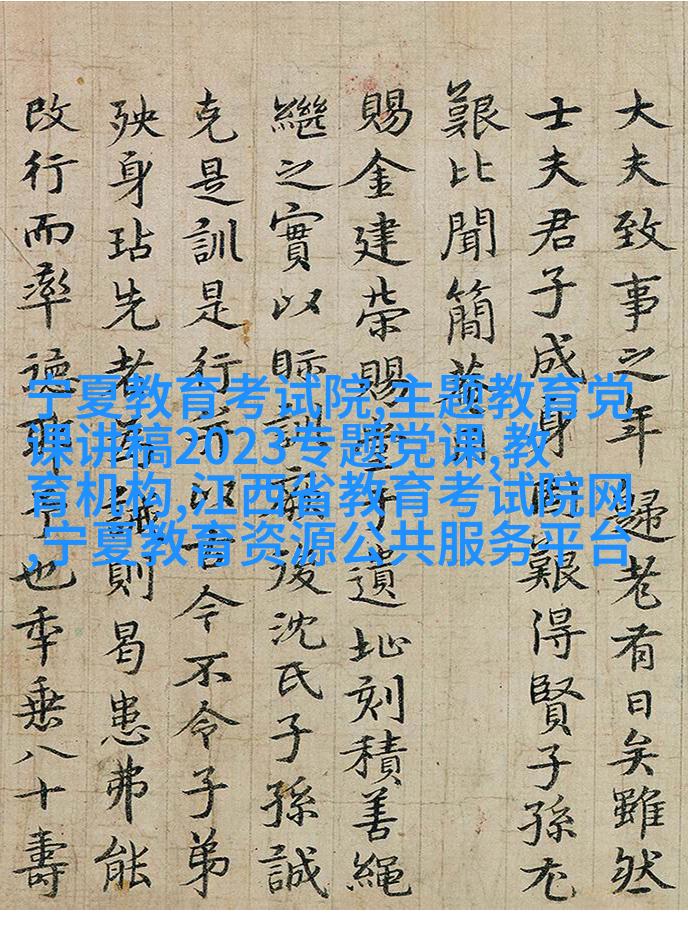 大夫致事之年歸老有日矣雖然
士夫君子成身既艱得賢子孫尤
艱比聞簡菴
賜金建荣賜于遺址刻積善繩
繼之實以眎訓後沈氏子孫誠
克是訓是行以令不令子弟
殃身玷先者則曷患弗能
改行而率德耶予也年垂八十壽
宁夏教育考试院,主题教育党
课讲稿2023专题党课,教
育机构,江西省教育考试院网
,宁夏教育资源公共服务平台